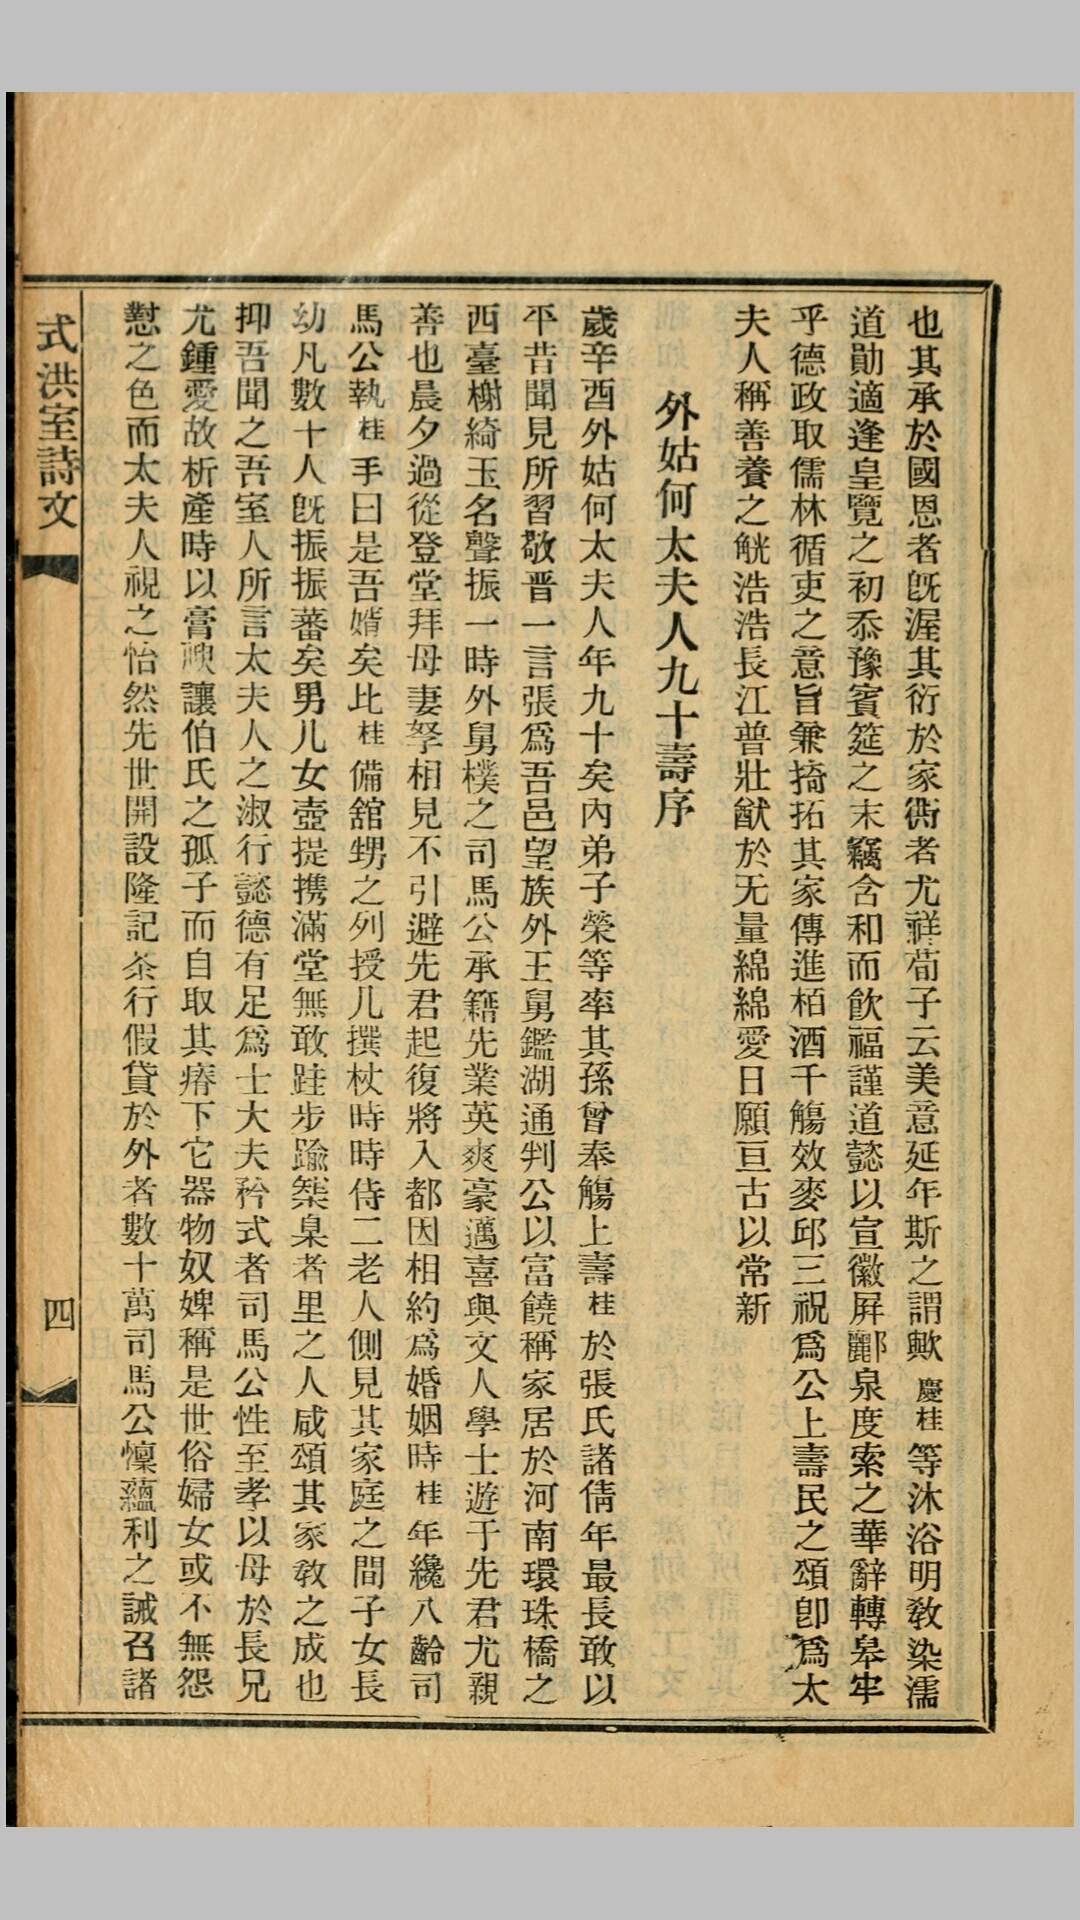 也其承於國恩者旣渥其衍於家衖者尤祥荀子云美意延年斯之謂歟慶桂等沐浴明敎染濡
道勛適逢皇覽之初忝豫賓筵之末竊含和而飮福謹道懿以宣徽屛酈泉度索之華辭轉皋牢
乎德政取儒林循吏之意旨兼掎拓其家傳進栢酒千觴效麥邱三祝爲公上壽民之頌卽爲太
夫人稱善養之觥浩浩長江普壯猷於无量綿綿愛日願亘古以常新
外姑何太夫人九十壽序
歲辛酉外姑何太夫人年九十矣內弟子榮等率其孫曾奉觴上壽桂於張氏諸倩年最長敢以
平昔聞見所習敬晋一言張爲吾邑望族外王舅鑑湖通判公以富饒稱家居於河南環珠橋之
西臺榭綺玉名聲振一時外舅樸之司馬公承籍先業英爽豪邁喜與文人學士遊于先君尤親
善也晨夕過從登堂拜母妻孥相見不引避先君起復將入都因相約爲婚姻時桂年纔八齡司
馬公執桂手曰是吾婿矣比桂備舘甥之列授几撰杖時時侍二老人側見其家庭之間子女長
幼凡數十人旣振振蕃矣男儿女壺提携滿堂無敢跬步踰榘臬者里之人咸頌其家敎之成也
抑吾聞之吾室人所言太夫人之淑行懿德有足爲士大夫矜式者司馬公性至孝以母於長兄
尤鍾愛故析產時以膏腴讓伯氏之孤子而自取其瘠下它器物奴婢稱是世俗婦女或不無怨
懟之色而太夫人視之怡然先世開設隆記茶行假貸於外者數十萬司馬公懍蘊利之誡召諸
式洪室詩文
四